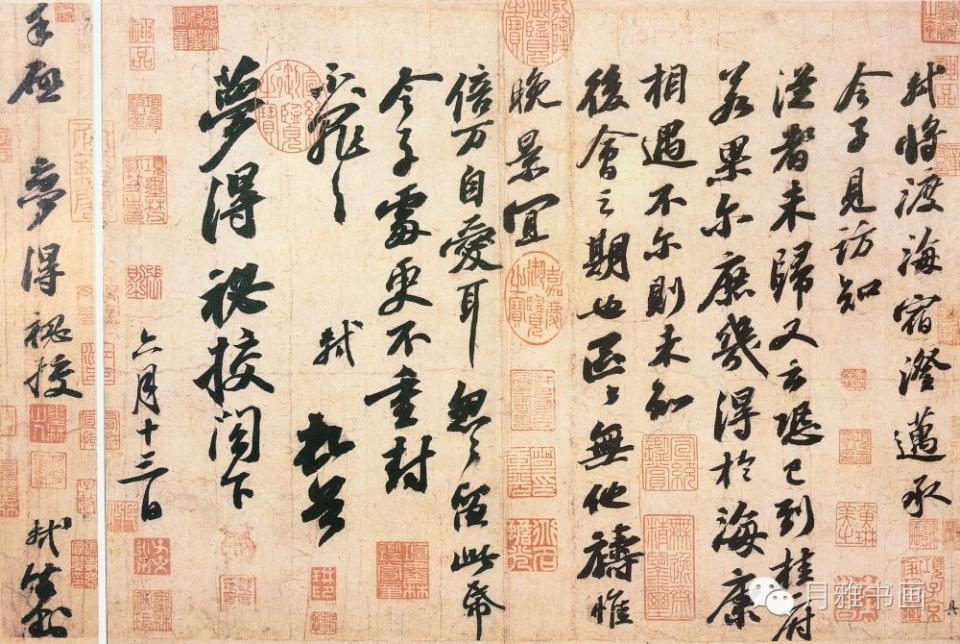 軾將渡海宿澄邁承
令子見訪知
從者未歸又云恐已到桂府
若果尔庶幾得於海康
相遇不尔則未知
後會之期也區〻無他禱惟
晚景宜
倍万自愛耳忽〻留此帋
令子處更不重封
不罪〻 軾頓首
夢得祕校閣下
六月十三日
手啟 夢得祕校 軾封
嘉慶御覽之寶
宣統御覽之寶
月雅书画